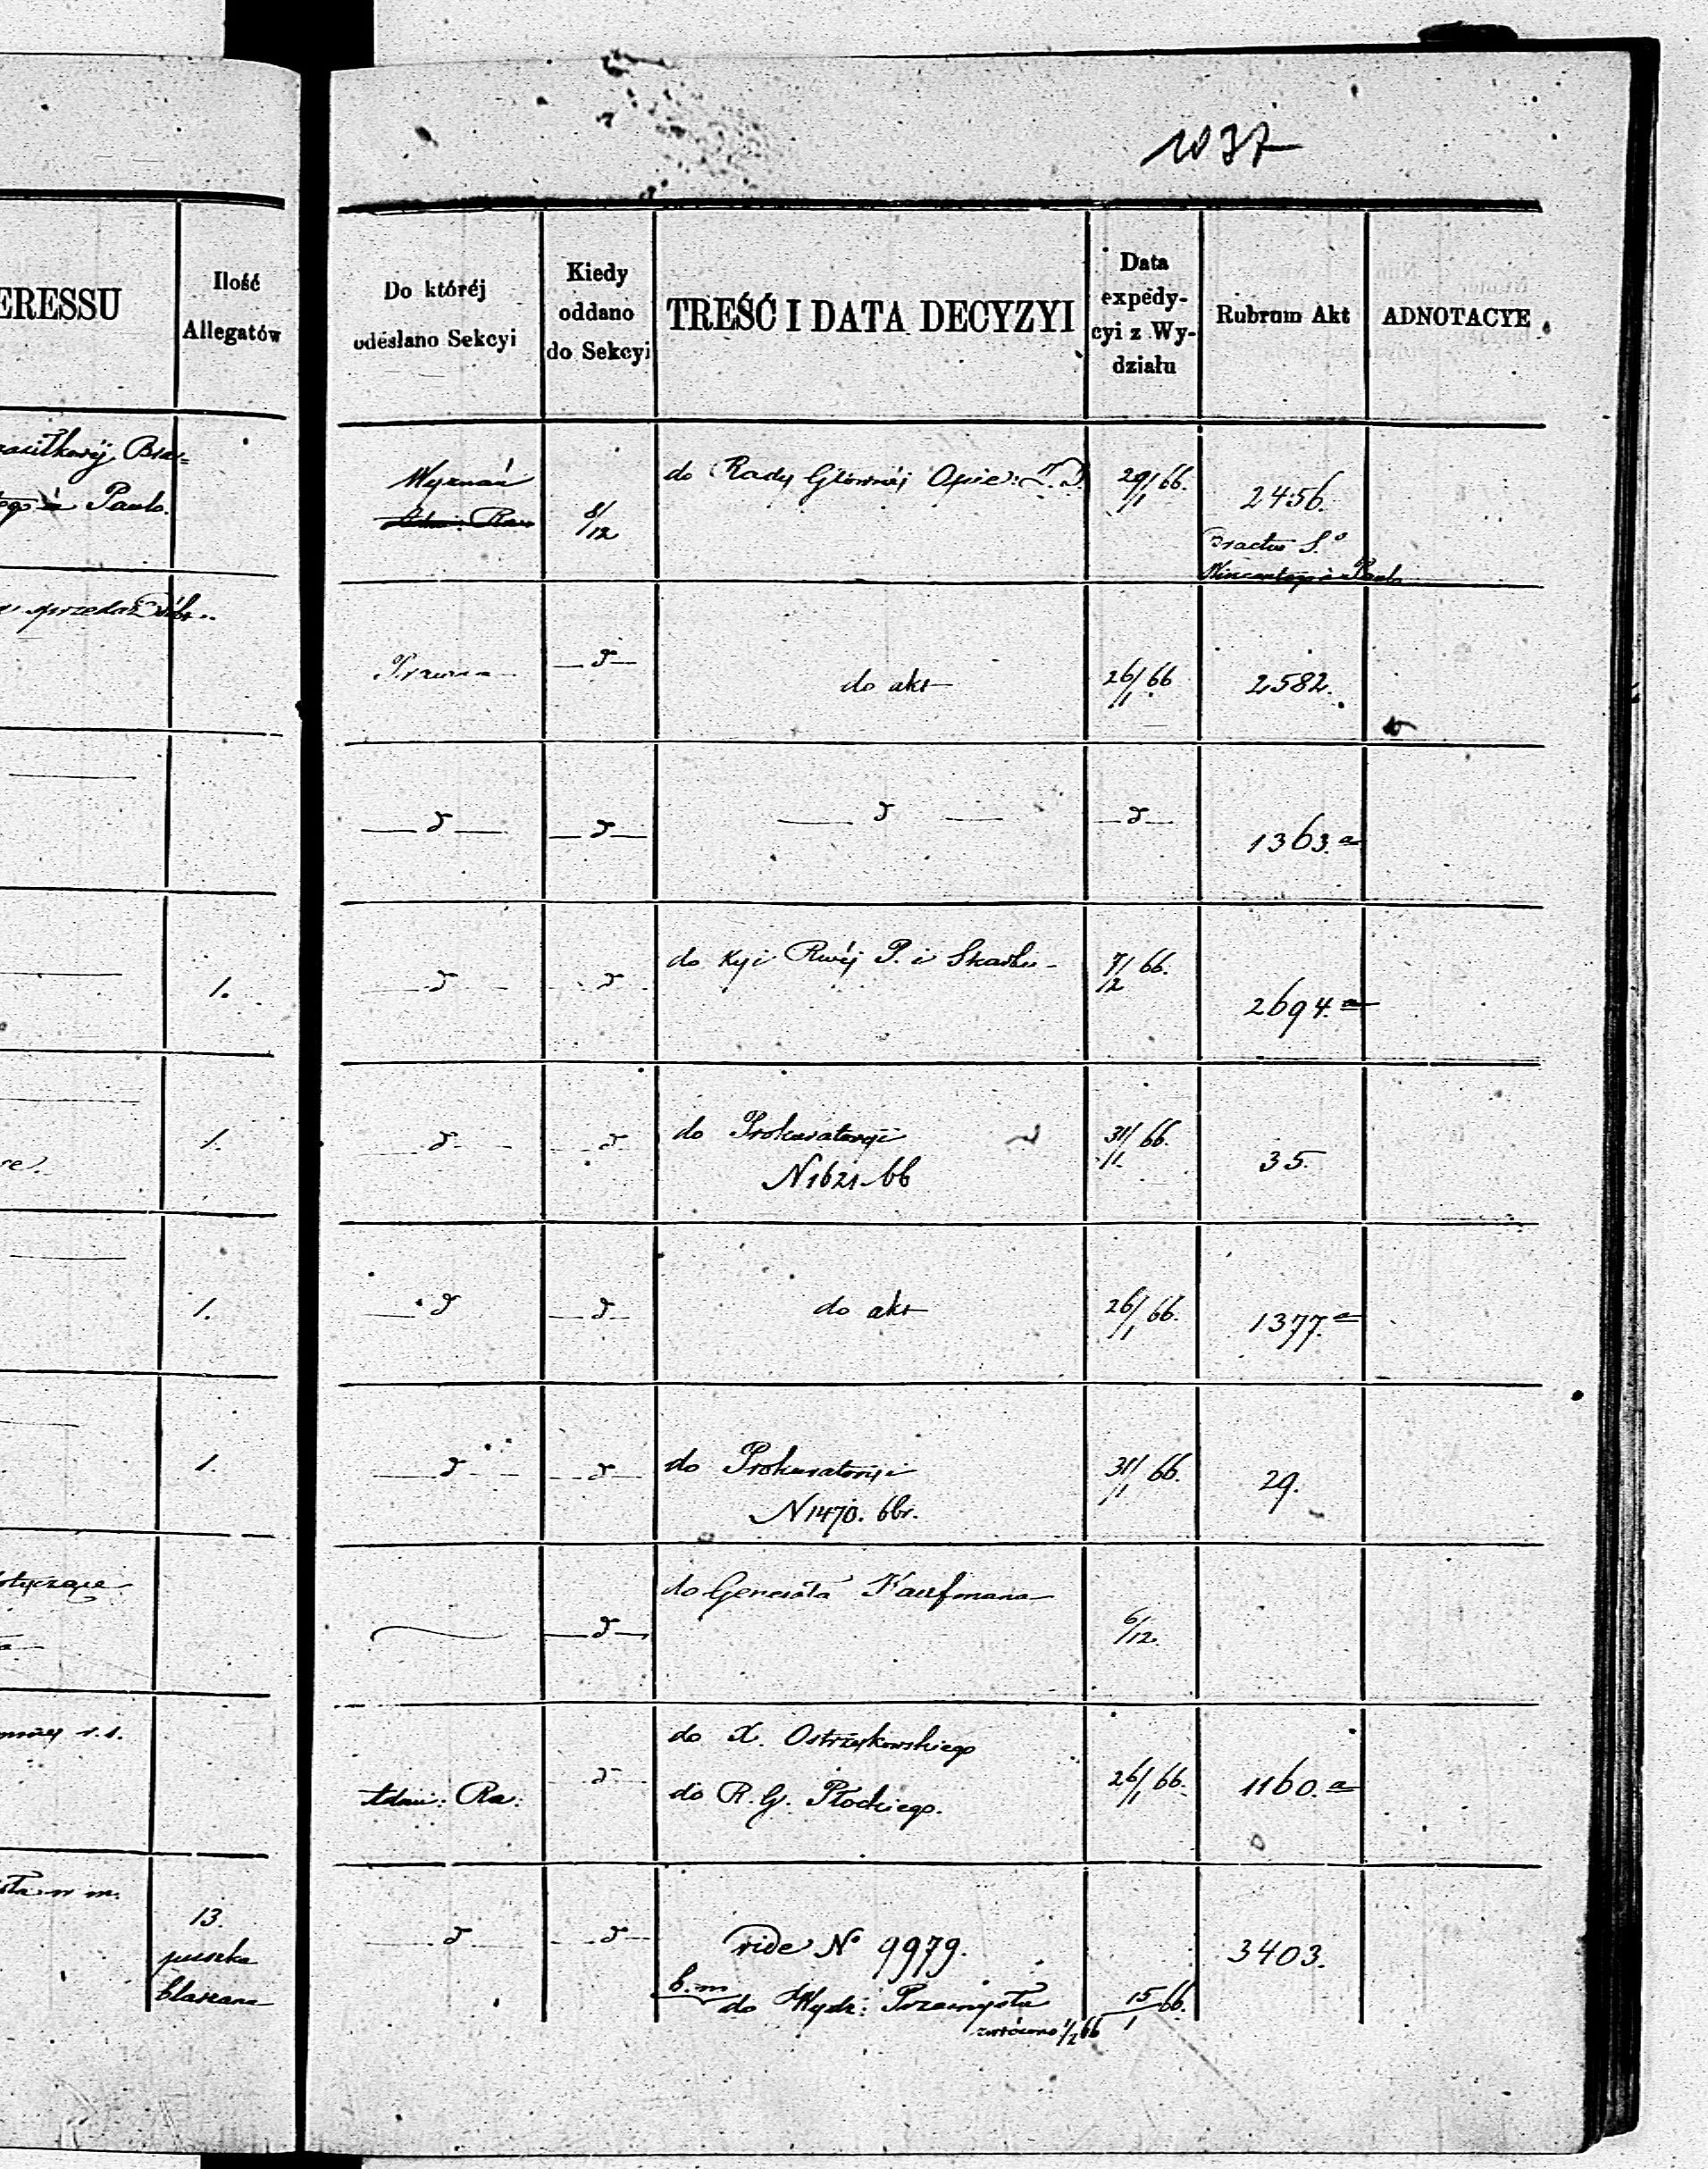 1037
ERESSU
Ilość
Allegatów
Do któréj
odesłano Sekcyi
Kiedy
oddano
do Sekcyi
TREŚĆ I DATA DECYZYI
Data
expedy-
cyi z Wy-
działu
Rubrum Akt
ADNOTACYE
Wyznań
8/12
do Rady Głównéj Opie:
29/1 66.
2456.
Bractwo S.º
Wincentego à Paulo
à Paulo.
sprzedaż Dóbr.
Prawna
— d —
do akt
26/1 66
2582.
— d —
— d —
— d —
— d —
1363.a
1.
— d —
— d —
do Kyi Rwéj P. i Skarbu
7/2 66.
2694.a
1.
— d —
— d —
do Prokuratoryi
N 1621.66
31/1 66.
35.
1.
— d
— d —
do akt
26/1 66.
1377.a
1.
— d —
— d —
do Prokuratoryi
N 1470. 66r.
31/1 66.
29.
dotyczące
— d —
do Generała Kaufmana
6/12.
r. s.
Adm: Ra:
d
do X. Ostrzykowskiego
do R. G. Płockiego.
26/1 66.
1160.a
13.
puszka
blaszana
— d —
— d —
vide Nº 9979.
b. m
do Wydz: Przemysłu
zwrócono 1/2 66
15/1 66.
3403.